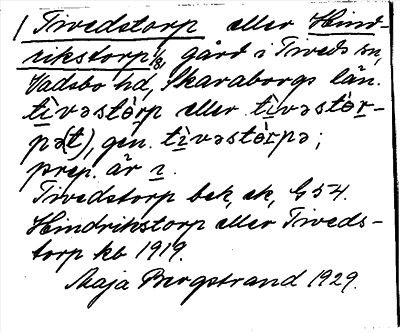 1 Tivedstorp eller Hind-
rikstorp, 1/8, gård i Tiveds sn,
Vadsbo hd, Skaraborgs län.
tìvəstòrp eller tìvəstòr-
pə(t), gen. tìvəstòrpə;
prep. är ı.
Tivedstorp bek, ek, G 54.
Hindrikstorp eller Tiveds-
torp kb 1919.
Maja Bergstrand 1929.